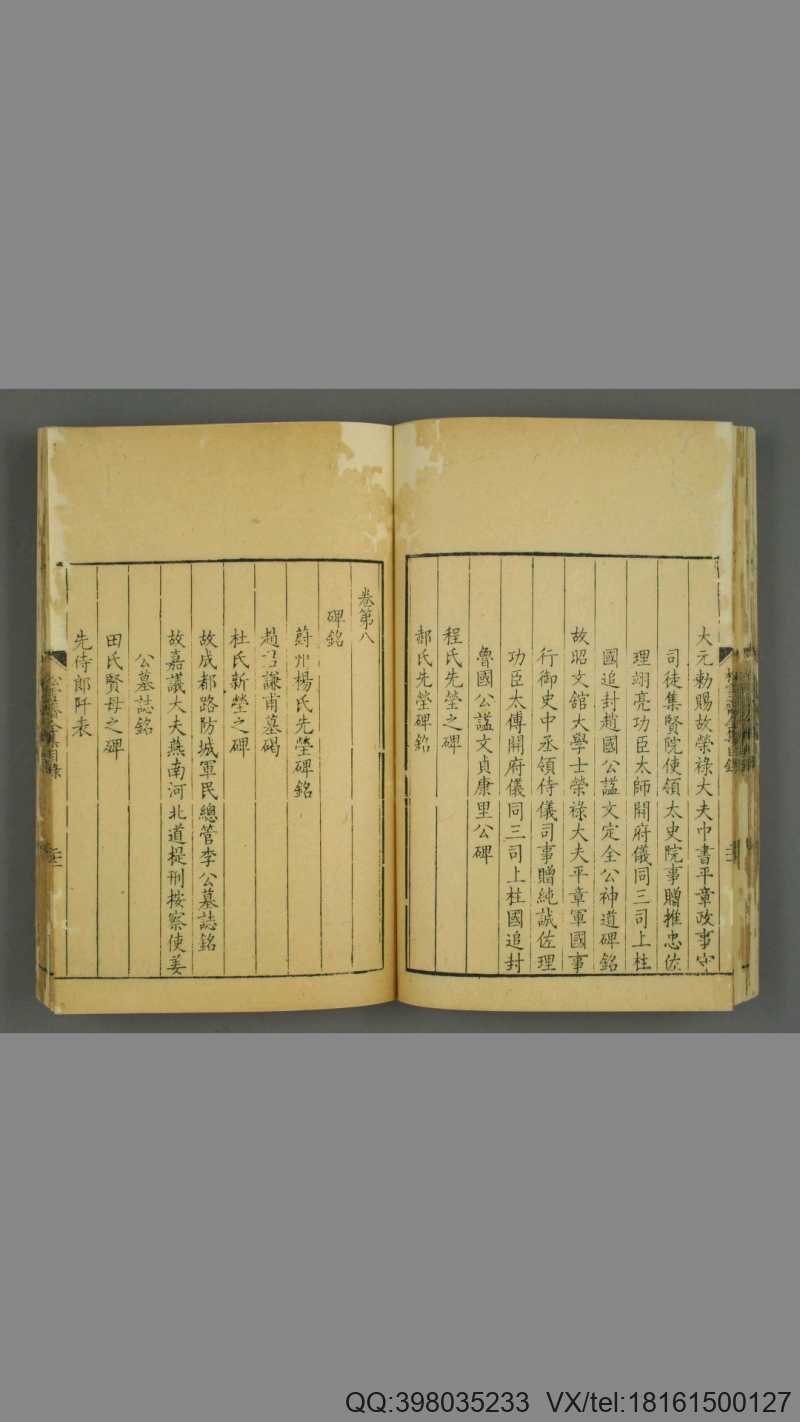 大元勅賜故榮祿大夫中書平章政事守
司徒集賢院使領太史院事贈推忠佐
理翊亮功臣太師開府儀同三司上柱
國追封趙國公諡文定全公神道碑銘
故昭文館大學士榮祿大夫平章軍國事
行御史中丞領侍儀司事贈純誠佐理
功臣太傅開府儀同三司上柱國追封
魯國公諡文貞康里公碑
程氏先塋之碑
郝氏先塋碑銘
卷第八
碑銘
蔚州楊氏先塋碑銘
趙君謙甫墓碣
杜氏新塋之碑
故成都路防城軍民總管李公墓誌銘
故嘉議大夫燕南河北道提刑按察使姜
公墓誌銘
田氏賢母之碑
先侍郎阡表
QQ:398035233 VX/tel:18161500127